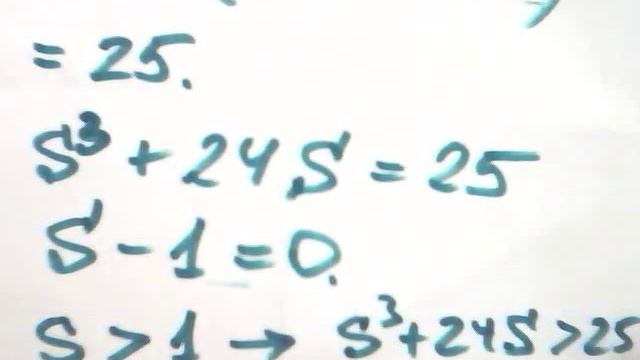 = 25.
S³ + 24S = 25
S - 1 = 0.
S > 1 → S³ + 24S > 25